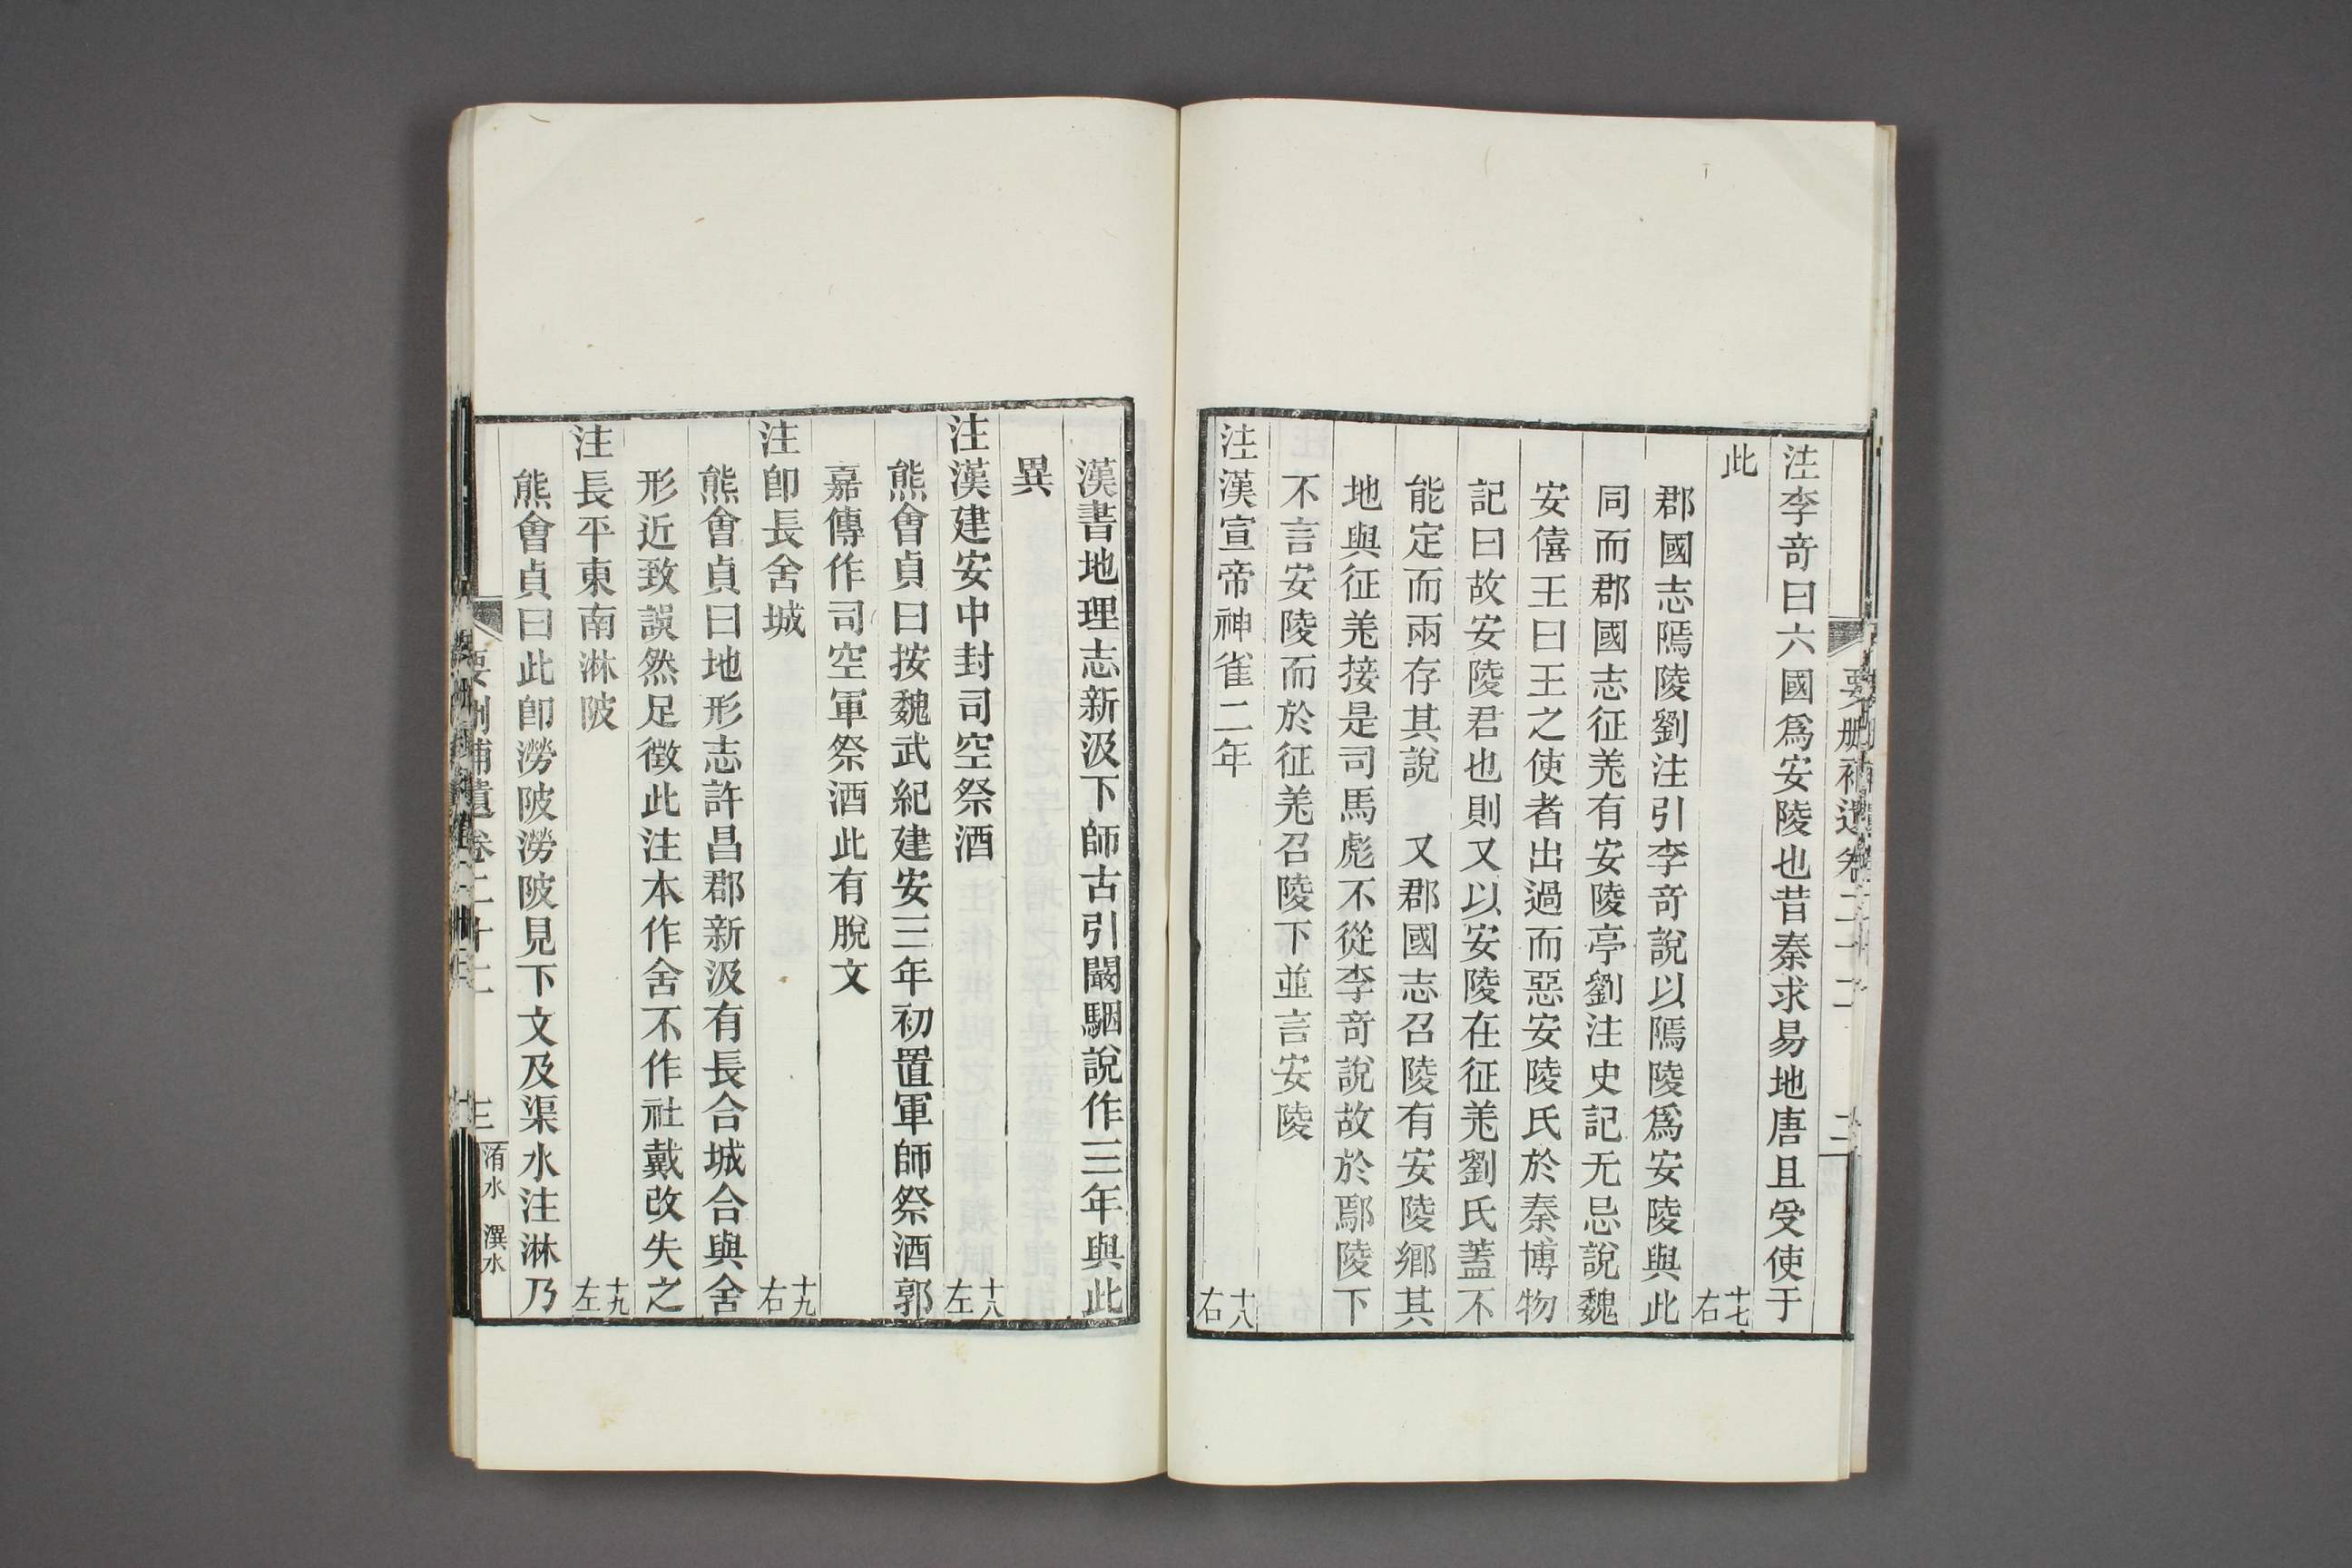 要刪補遺卷二十二
二
注李奇曰六國爲安陵也昔秦求易地唐且受使于
此 十七右
郡國志隝陵劉注引李奇說以隝陵爲安陵與此
同而郡國志征羌有安陵亭劉注史記无忌說魏
安僖王曰王之使者出過而惡安陵氏於秦博物
記曰故安陵君也則又以安陵在征羌劉氏蓋不
能定而兩存其說 又郡國志召陵有安陵鄉其
地與征羌接是司馬彪不從李奇說故於鄢陵下
不言安陵而於征羌召陵下並言安陵
注漢宣帝神雀二年 十八右
漢書地理志新汲下師古引闞駰說作三年與此
異
注漢建安中封司空祭酒 十八左
熊會貞曰按魏武紀建安三年初置軍師祭酒郭
嘉傳作司空軍祭酒此有脫文
注卽長舍城 十九右
熊會貞曰地形志許昌郡新汲有長合城合與舍
形近致誤然足徵此注本作舍不作社戴改失之
注長平東南淋陂 十九左
熊會貞曰此卽澇陂澇陂見下文及渠水注淋乃
要刪補遺卷二十二
三
洧水 潩水